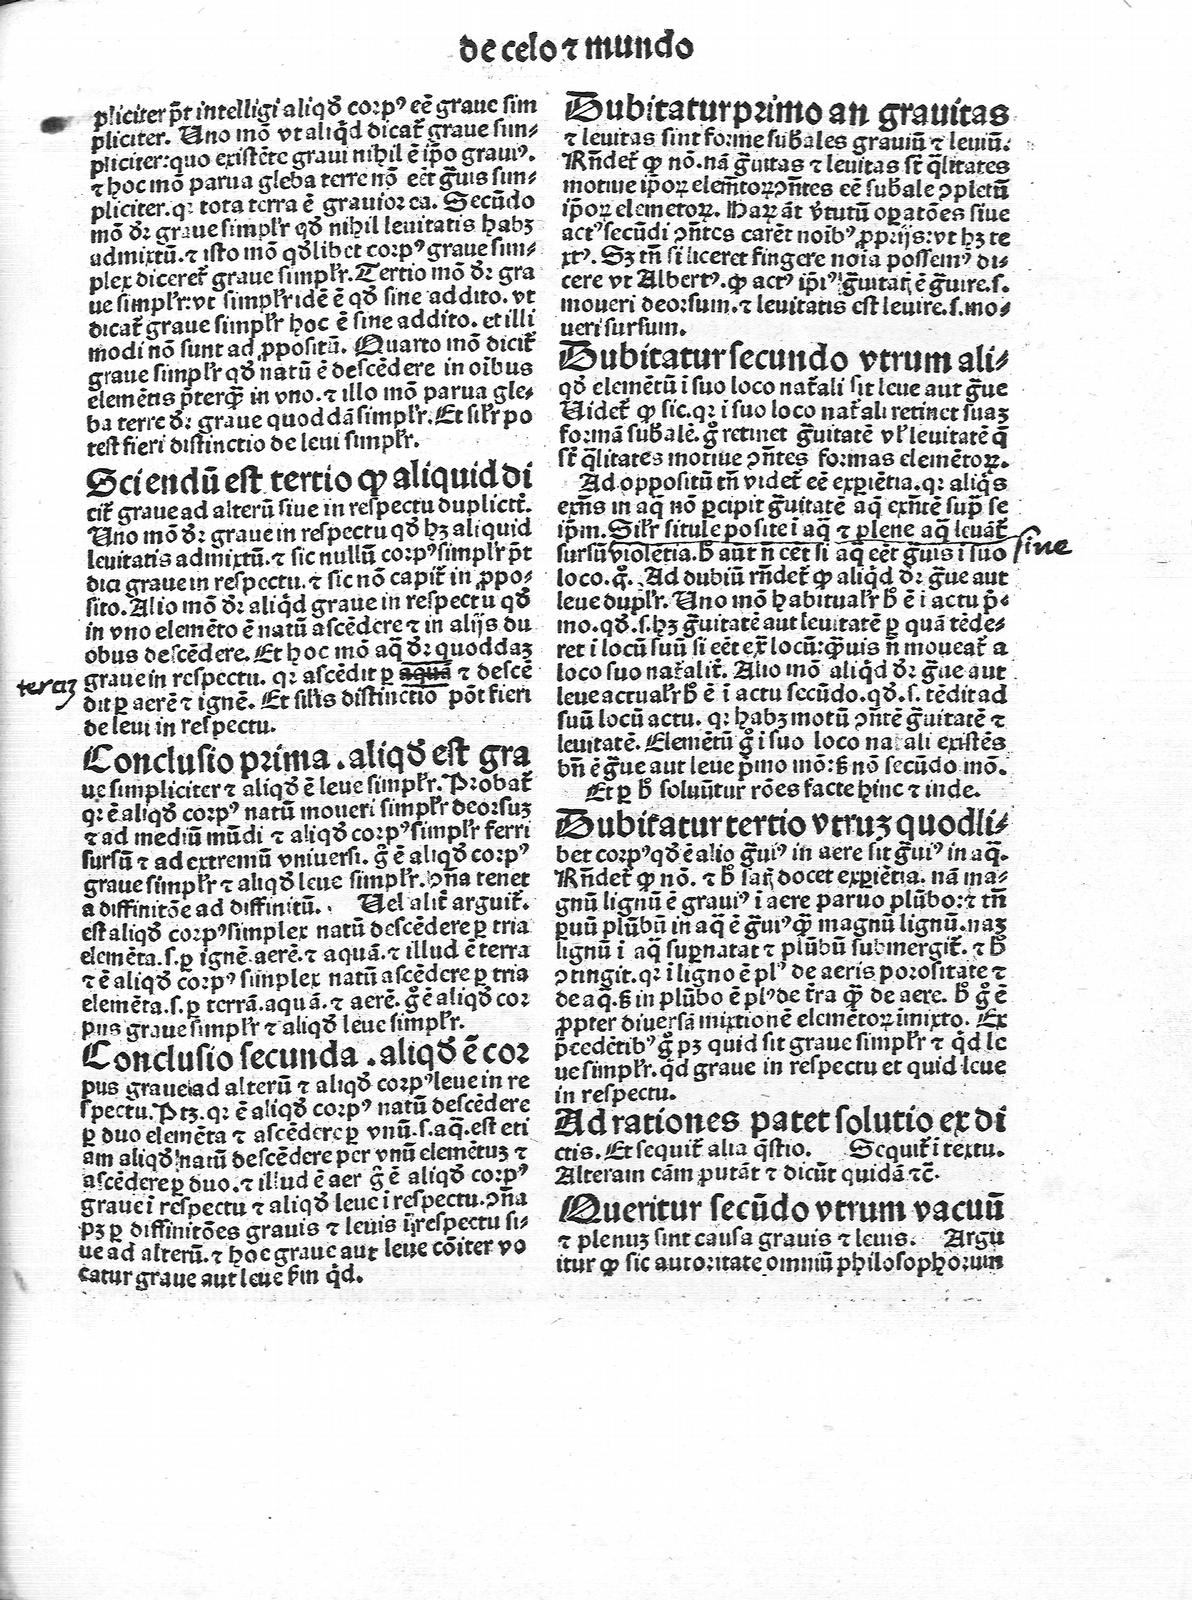 de celo ⁊ mundo
pliciter p̄t intelligi aliqđ corpꝰ eē graue sim
pliciter. Uno mō vt aliq̇d dicat̄ graue sim⸗
pliciter: quo existēte graui nihil ē ip̄o grauiꝰ.
⁊ hoc mō parua gleba terre nō eēt ḡuis sim⸗
pliciter. qꝛ tota terra ē grauior ea. Secūdo
mō dr̄ graue simplr̄ qđ nihil leuitatis habꝫ
admixtū. ⁊ isto mō qđlibet corpꝰ graue sim⸗
plex diceret̄ graue simplr̄. Tertio mō dr̄ gra
ue simplr̄: vt simplr̄ idē ē qđ sine addito. vt
dicat̄ graue simplr̄ hoc ē sine addito. et illi
modi nō sunt ad ꝓpositū. Quarto mō dicit̄
graue simplr̄ qđ natū ē descēdere in oībus
elemētis p̄terq̄ꝫ in vno. ⁊ illo mō parua gle⸗
ba terre dr̄ graue quoddā simplr̄. Et silr̄ po
test fieri distinctio de leui simplr̄.
Sciendū est tertio ꝙ aliquid di
cit̄ graue ad alterū siue in respectu duplicit̄.
Uno mō dr̄ graue in respectu qđ hꝫ aliquid
leuitatis admixtū. ⁊ sic nullū corpꝰ simplr̄ p̄t
dici graue in respectu. ⁊ sic nō capit̄ in ꝓpo⸗
sito. Alio mō dr̄ aliq̇d graue in respectu qđ
in vno elemēto ē natū ascēdere ⁊ in alijs du
obus descēdere. Et hoc mō aq̄ dr̄ quoddaꝫ
graue in respectu. qꝛ ascēdit ꝑ aquā ⁊ descē
terāꝫ
dit ꝑ aerē ⁊ ignē. Et silis distinctio pōt fieri
de leui in respectu.
Conclusio prima. aliqđ est gra
ue simpliciter ⁊ aliqđ ē leue simplr̄. Probat̄
qꝛ ē aliqđ corpꝰ natū moueri simplr̄ deorsuꝫ
⁊ ad mediū mūdi ⁊ aliqđ corpꝰ simplr̄ ferri
sursū ⁊ ad extremū vniuersi. g̊ ē aliqđ corpꝰ
graue simplr̄ ⁊ aliqđ leue simplr̄. ꝯn̄a tenet
a diffinitōe ad diffinitū. Uel alit̄ arguit̄.
est aliqđ corpꝰ simplex natū descēdere ꝑ tria
elemēta. s. ꝑ ignē. aerē. ⁊ aquā. ⁊ illud ē terra
⁊ ē aliqđ corpꝰ simplex natū ascēdere ꝑ tria
elemēta. s. ꝑ terrā. aquā. ⁊ aerē. g̊ ē aliqđ cor
pus graue simplr̄ ⁊ aliqđ leue simplr̄.
Conclusio secunda. aliqđ ē cor
pus graue ad alterū ⁊ aliqđ corpꝰ leue in re
spectu. Ptꝫ. qꝛ ē aliqđ corpꝰ natū descēdere
ꝑ duo elemēta ⁊ ascēdere ꝑ vnū. s. aq̄. est eti
am aliqđ natū descēdere per vnū elemētuꝫ ⁊
ascēdere ꝑ duo. ⁊ illud ē aer g̊ ē aliqđ corpꝰ
graue ī respectu ⁊ aliqđ leue ī respectu. ꝯn̄a
pꝫ ꝑ diffinitōes grauis ⁊ leuis ī respectu si⸗
ue ad alterū. ⁊ hoc graue aut leue cōiter vo
catur graue aut leue ẜm q̇d.
Dubitatur primo an grauitas
⁊ leuitas sint forme sub̄ales grauiū ⁊ leuiū.
Rn̄det̄ ꝙ nō. nā ḡuitas ⁊ leuitas st̄ q̄litates
motiue ip̄oꝝ elem̄toꝝ ꝯn̄tes eē sub̄ale ꝯpletū
ip̄oꝝ elemētoꝝ. Haꝝ āt v̄tutū opatōes siue
actꝰ secūdi ꝯn̄tes carēt noībꝰ ꝓprijs: vt hꝫ te
xtꝰ. Sꝫ tn̄ si liceret fingere noīa possemꝰ di⸗
cere vt Albertꝰ. ꝙ actꝰ ip̄iꝰ ḡuitatꝭ ē ḡuire. s.
moueri deorsum. ⁊ leuitatis est leuire. s. mo⸗
ueri sursum.
Dubitatur secundo vtrum ali⸗
qđ elemētū ī suo loco nat̄ali sit leue aut ḡue
Uidet̄ ꝙ sic. qꝛ ī suo loco nat̄ali retinet suaꝫ
formā sub̄alē. g̊ retinet ḡuitatē vl̄ leuitatē q̄
st̄ q̄litates motiue ꝯn̄tes formas elemētoꝝ.
Ad oppositū tn̄ videt̄ eē exꝑiētia. qꝛ aliq̇s
exn̄s in aq̄ nō ꝑcipit ḡuitatē aq̄ exn̄tē sup̄ se
ip̄m. Silr̄ situle posite ī aq̄ ⁊ plene aq̄ leuāt̄
sursū violētia. hꝰ aūt n̄ cēt si aq̄ eēt ḡuis ī suo
sine
loco. g̊. Ad dubiū rn̄det̄ ꝙ aliq̇d dr̄ ḡue aut
leue duplr̄. Uno mō habitualr̄ hꝰ ē ī actu p̄⸗
mo. qđ. s. hꝫ ḡuitatē aut leuitatē ꝑ quā tēde⸗
ret ī locū suū si eēt ex̄ locū: q̄ꝫuis n̄ moueat̄ a
loco suo nat̄alit̄. Alio mō aliq̇d dr̄ ḡue aut
leue actualr̄ hꝰ ē ī actu secūdo. qđ. s. tēdit ad
suū locū actu. qꝛ habꝫ motū ꝯn̄tē ḡuitatē ⁊
leuitatē. Elemētū g̊ ī suo loco nat̄ali existēs
bn̄ ē ḡue aut leue p̄mo mō: ẜ nō secūdo mō.
Et ꝑ hꝰ soluūtur rōes facte hinc ⁊ inde.
Dubitatur tertio vtruꝫ quodli⸗
bet corpꝰ qđ ē alio ḡuiꝰ in aere sit ḡuiꝰ in aq̄.
Rn̄det̄ ꝙ nō. ⁊ hꝰ satꝭ docet exꝑiētia. nā ma⸗
gnū lignū ē grauiꝰ ī aere paruo plūbo: ⁊ tn̄
ꝑuū plūbū in aq̄ ē ḡuiꝰ q̄ꝫ magnū lignū. naꝫ
lignū ī aq̄ suꝑnatat ⁊ plūbū submergit̄. ⁊ hꝰ
ꝯtingit. qꝛ ī ligno ē plꝰ de aeris porositate ⁊
de aq̄. ẜ in plūbo ē plꝰ de t̄ra q̄ꝫ de aere. hꝰ g̊ ē
ꝓpter diuersā mixtionē elemētoꝝ ī mixto. Ex
p̄cedētibꝰ g̊ pꝫ quid sit graue simplr̄ ⁊ q̇d le
ue simplr̄. q̇d graue in respectu et quid leue
in respectu.
Ad rationes patet solutio ex di
ctis. Et sequit̄ alia q̄stio. Sequit̄ ī textu.
Alteram cām putāt ⁊ dicūt quidā ⁊c̄.
Queritur secūdo vtrum vacuū
⁊ plenuꝫ sint causa grauis ⁊ leuis. Argu
itur ꝙ sic autoritate omniū philosophorum